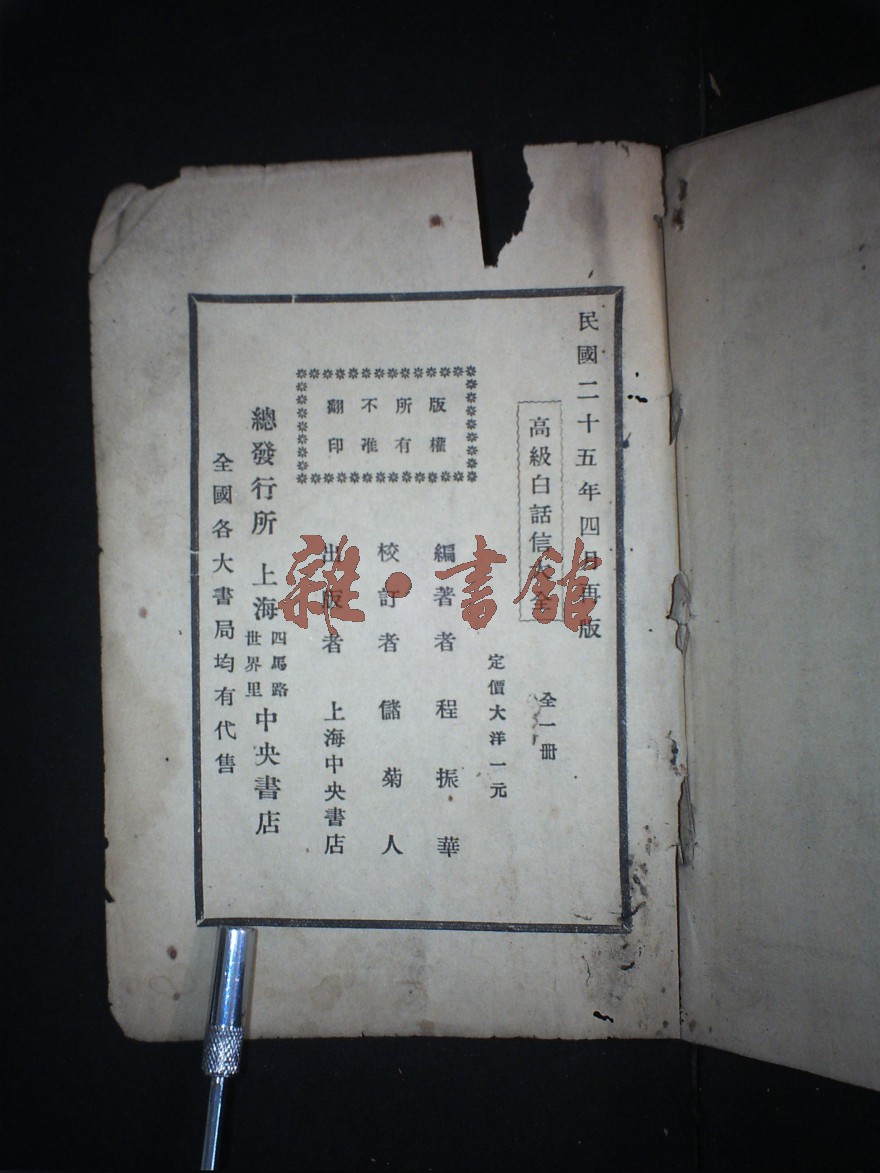 民國二十五年四月再版
高級白話信大全
全一册
定價大洋一元
版權
所有
不准
翻印
編著者 程振華
校訂者 儲菊人
出版者 上海中央書店
總發行所 上海 四馬路 世界里 中央書店
全國各大書局均有代售
雜·書館